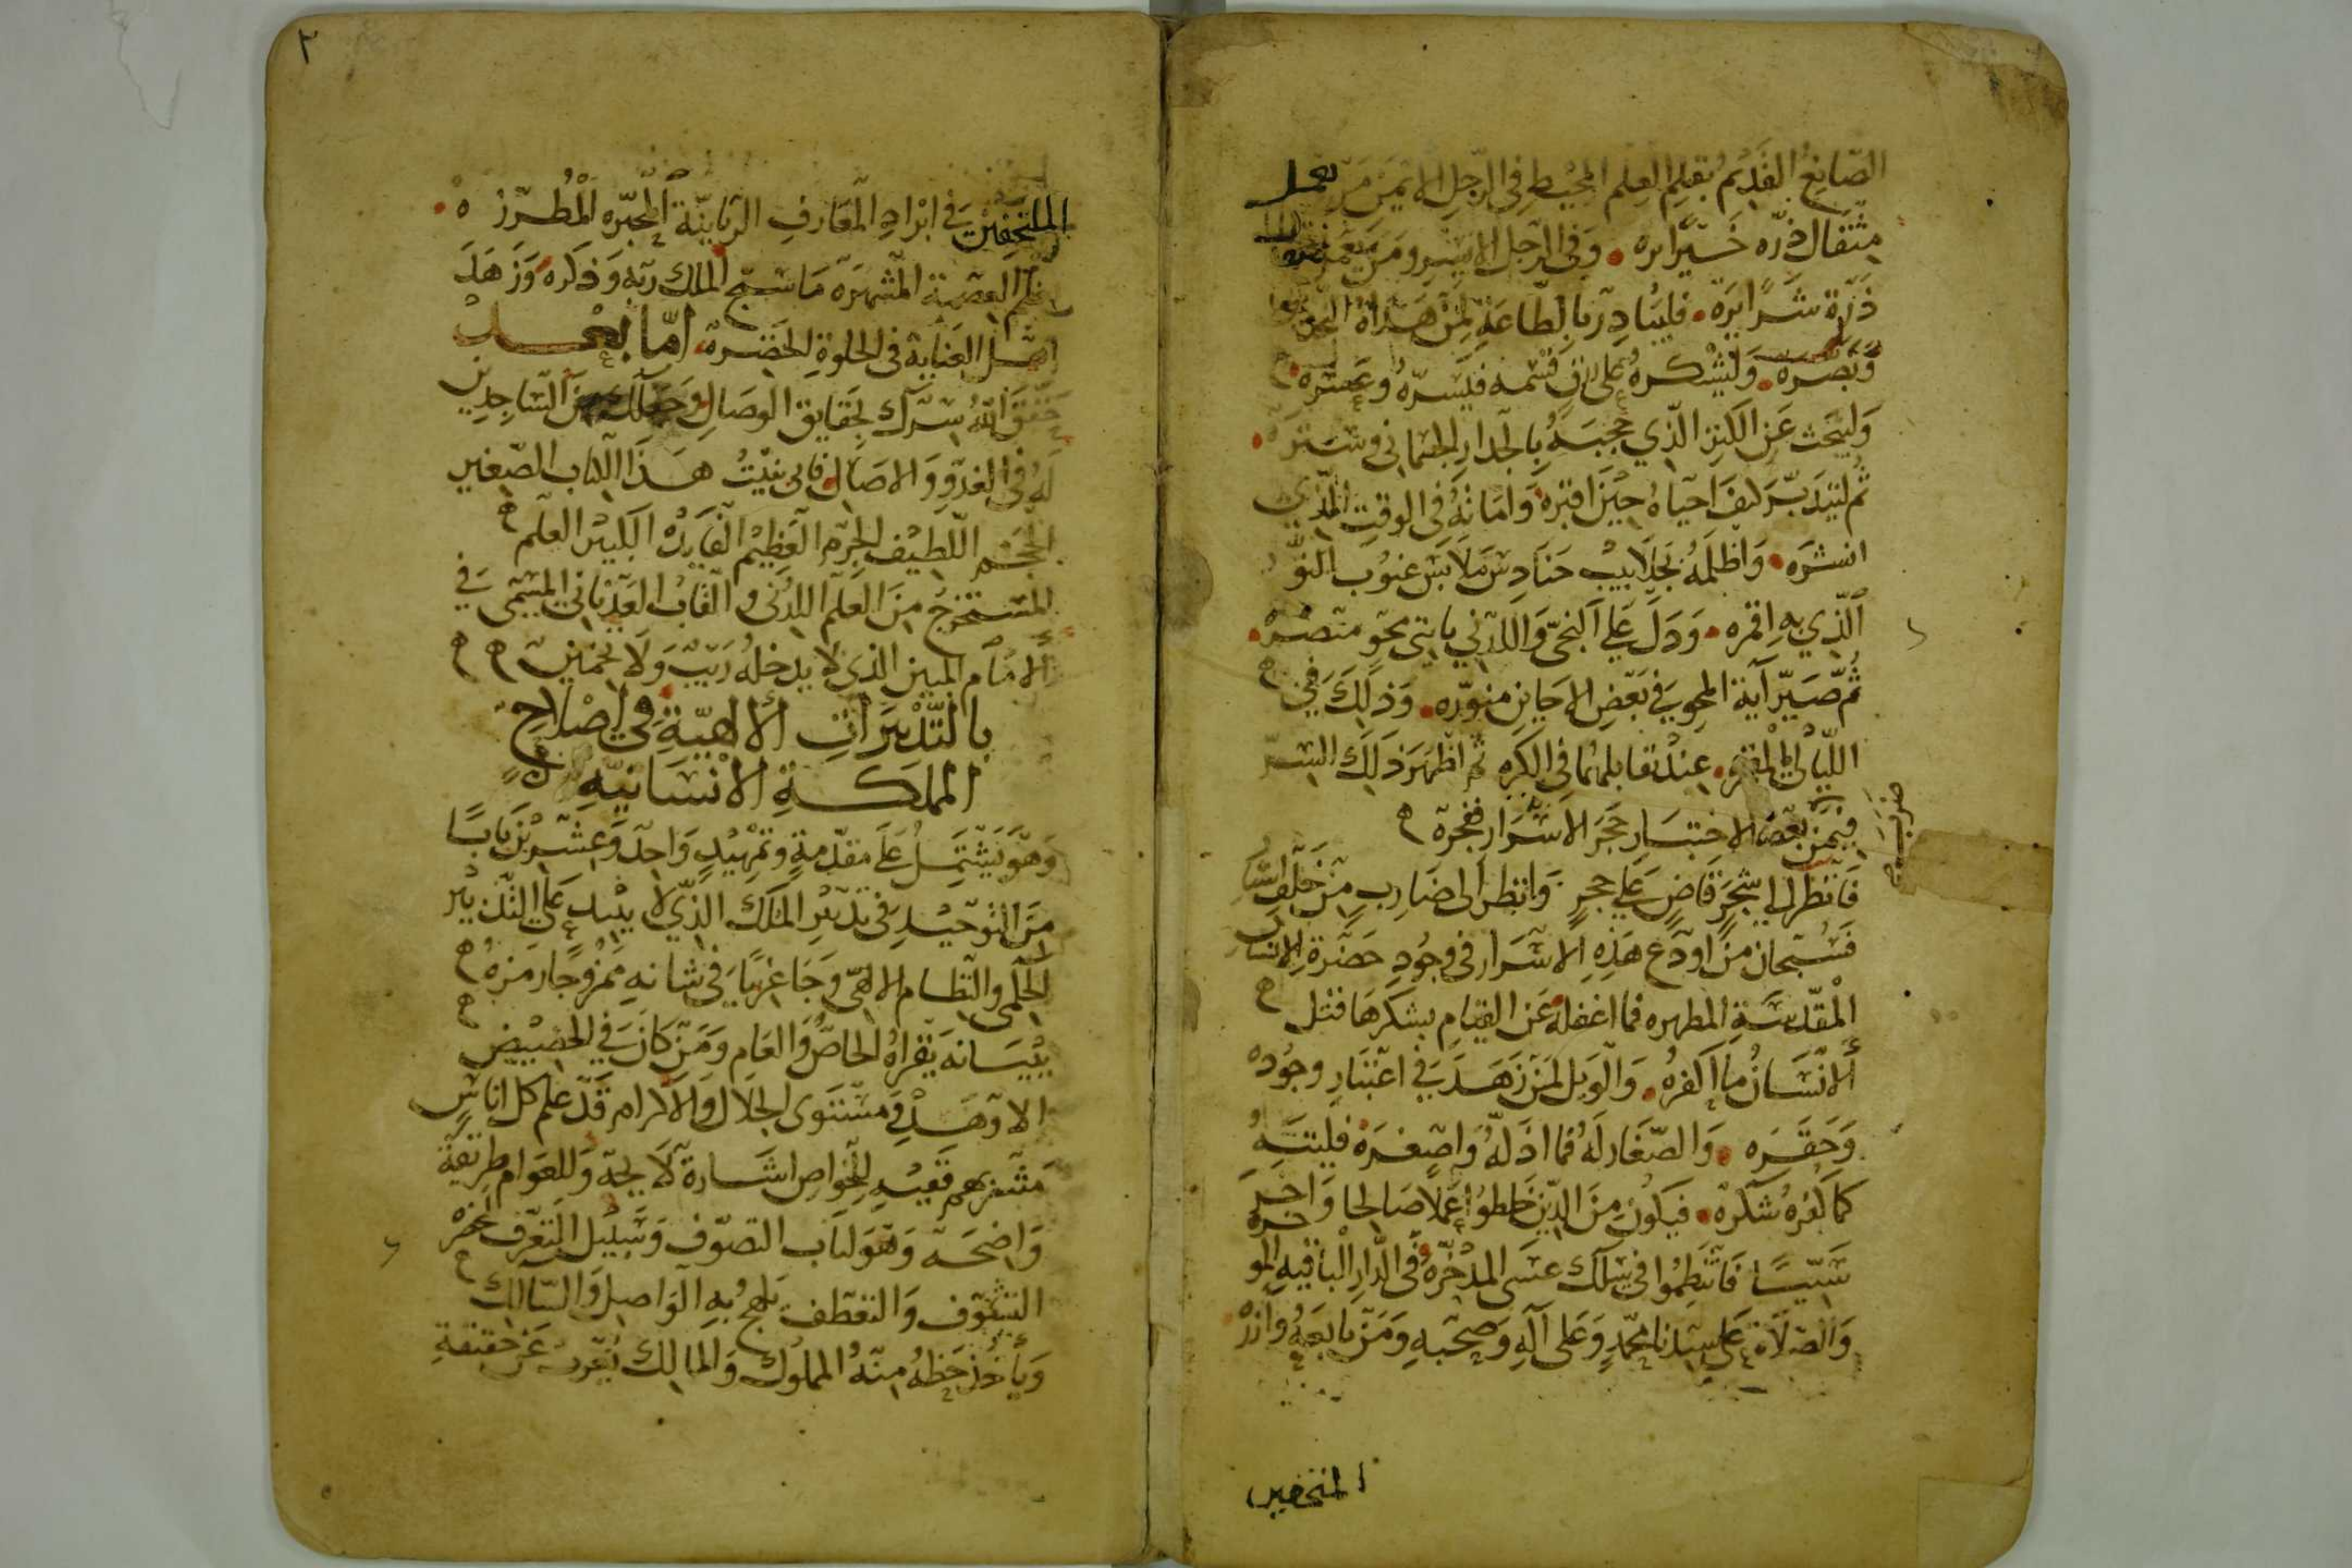 الصانع القديم بقلم العلم المحيط في الرجل الايمن من يعمل
مثقال ذرة خيرا يره وفي الرجل الايسر ومن يعمل مثقال
ذرة شرا يره فليبادر بالطاعة لمن هداه النجدين
وبصره وليشكره على ان قسمه فيسره وعسره
وليبحث عن الكنز الذي حجبه بالجدار الجثماني وستره
ثم ليتدبر كيف احياه حين اقبره وامانه في الوقت الذي
انشره واظلمه بجلابيب حنادس ملابس غيوب النور
الذي به اقمره ودل على النحو اللذني بايتي محو متصره
ثم صير آية المحو في بعض الاحايين منوره وذلك في
الليالي المقمره عند تقابلهما في الكره ثم اظهر ذلك السر
فيمن بعض الاختبار حجر الاسرار ففجره
فانظر الى شجر قاض على حجر وانظر الى ضارب من خلف استار
فسبحان من اودع هذه الاسرار في وجود حضرة الانسان
المقدسة المطهره فما اغفله عن القيام بشكرها قتل
الانسان ما اكفره والويل لمن زهد في اعتبار وجوده
وحقره والصغار له فما اذله واصغره فليتنبه
كما كفره شكره فيكون من الذين خلطوا عملا صالحا واخر
سيئا فانتظموا في سلك عسى المدخره في الدار الباقية المو
خره
والصلاة على سيدنا محمد وعلى آله وصحبه ومن تابعه وازره
الملتحفين
الملتحفين في ابراد المعارف الربانية المحبره المطرزه
العصبة المشتهرة ما سبح الملك ربه وذكره وزهد
اهل العناية في الحلوة الخضره اما بعد
حقق الله سرك بحقايق الوصال وجعلك من الساجدين
له في الغدو والاصال فاني بنيت هذا الكتاب الصغير
الحجم اللطيف الجرم العظيم الفايدة الكبير العلم
المستخرج من العلم اللدني والقاب العدناني المسمى في
الامام المبين الذي لا يدخله ريب ولا تخمين
بالتدبيرات الالهية في اصلاح
المملكة الانسانية
وهو يشتمل على مقدمة وتمهيد واحد وعشرين بابا
من التوحيد في تدبير الملك الذي لا يبيد على التدبير
الحكمي والنظام الالهي وجا غريبا في شانه ممزوجا رمزه
ببيانه يقراه الخاص والعام ومن كان في الحضيض
الاوهد ومستوى الجلال والاكرام قد علم كل اناس
مشربهم ففيه للخواص اشارة لايحة وللعوام طريقة
واضحة وهو لباب التصوف وسبيل التعرف لحضرة
التشوف والتعطف يلهج به الواصل والسالك
وياخذ حظه منه المملوك والمالك يعرب عن حقيقة